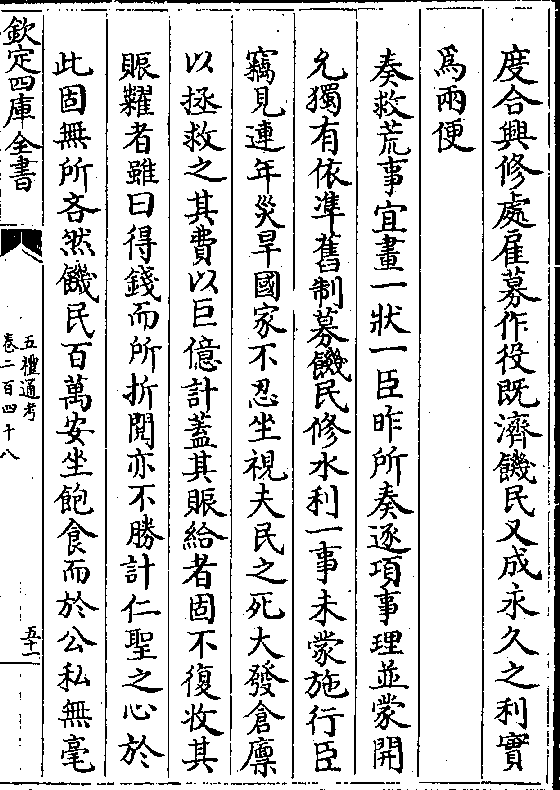 度合興修處雇募作役既濟饑民又成永久之利實
為兩便
奏救荒事宜畫一狀一臣昨所奏逐項事理並蒙開
允獨有依凖舊制募饑民修水利一事未蒙施行臣
竊見連年災旱國家不忍坐視夫民之死大發倉廪
以拯救之其費以巨億計蓋其賑給者固不復收其
賑糶者雖曰得錢而所折閲亦不勝計仁聖之心於
此固無所吝然饑民百萬安坐飽食而於公私無毫
欽定四庫全書
五禮通考
卷二百四十八
五十一